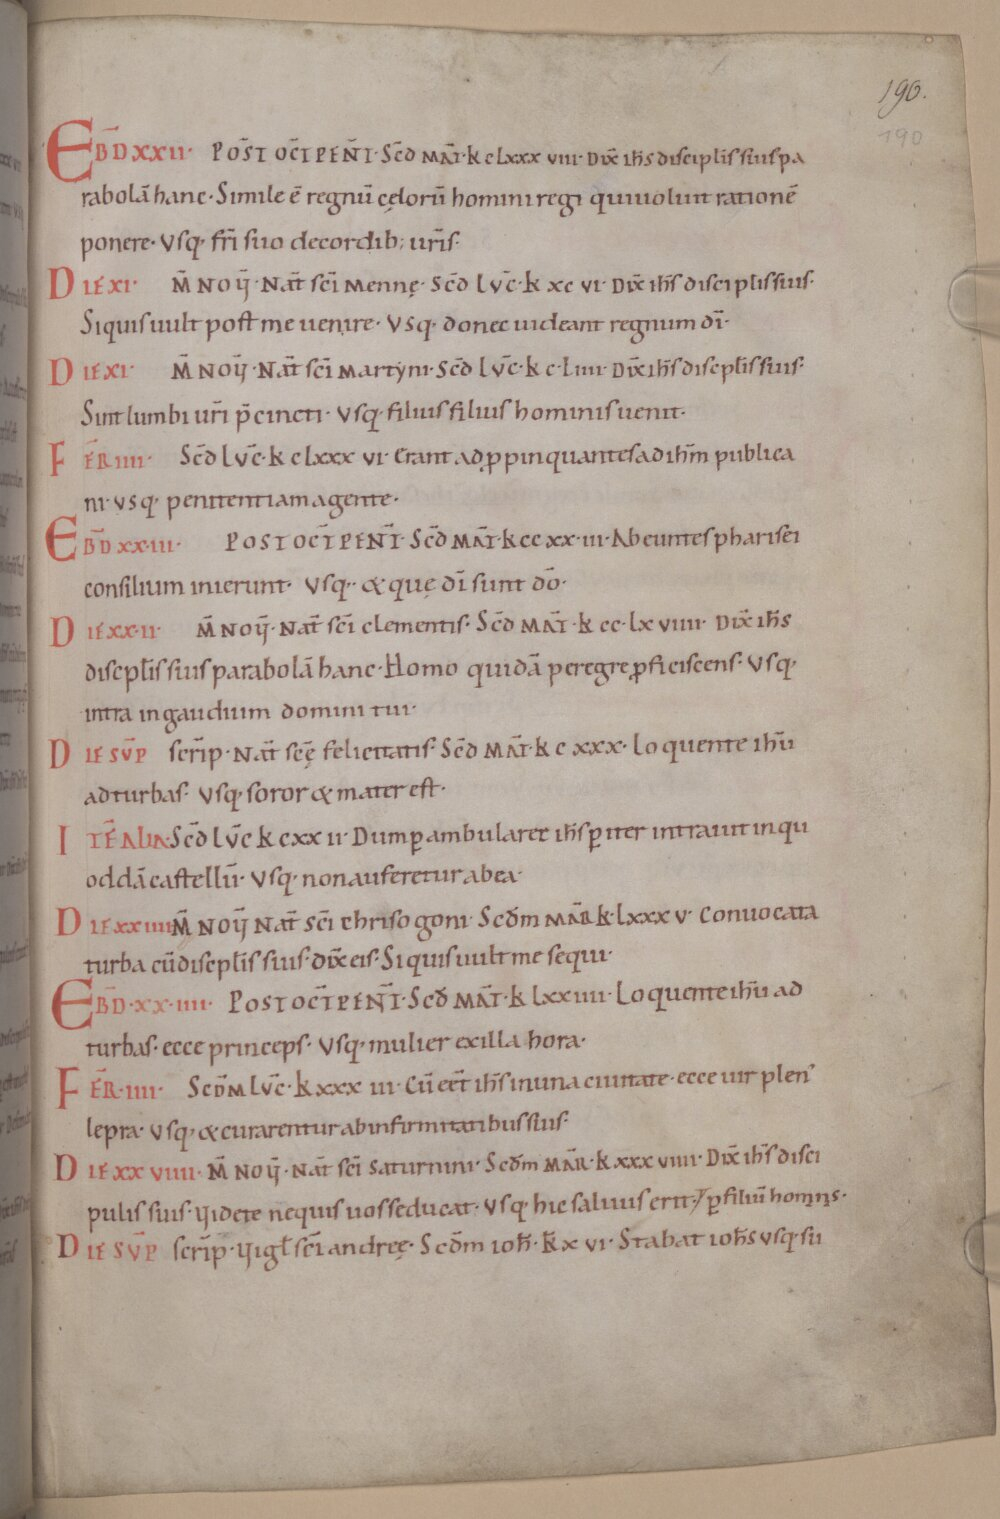 190.
190
EBD̄ XXII· POST̄ OCT̄ PENT̄· Sc̄d MAT̄· K clxxx viii· Dix̄ ih̄s discipl̄is suis pa
rabolā hanc· Simile ē regnū cęlorū homini regi qui uoluit rationē
ponere· Usq· fr̄i suo de cordib; ur̄is·
DIE XI· M̄ NOṼ· Nat̄ sc̄i Mennę· Sc̄d LVC̄· K xc vi· Dix̄ ih̄s disciplis suis·
Siquis uult post me uenire· Usq· donec uideant regnum dī·
DIE XI· M̄ NOṼ· Nat̄ sc̄i Martyni· Sc̄d LVC̄· K c·liiii· Dix̄ ih̄s discpl̄is suis·
Sint lumbi ur̄i p̄cincti· Usq· filius filius hominis uenit·
FER̄ IIII· Sc̄d LVC̄· K clxxx vi· Erant adp̱pinquantes ad ih̄m publica
ni· usq· penitentiam agente·
EBD̄ XX·III· POST OCT̄ PENT̄· Sc̄d MAT̄· K cc xx·iii· Abeuntes pharisei
consilium inierunt· Usq· & quę dī sunt dō·
DIE XX·II· M̄ NOṼ· Nat̄ sc̄i clementis· Sc̄d MAT̄· K cc·lx viiii· Dix̄ ih̄s
discpl̄is suis parabolā hanc· Homo quidā peregre p̱ficiscens· Usq·
intra in gaudium domini tui·
DIE SVP̄ scr̄ip· Nat̄ scę̄ felicitatis· Sc̄d MAT̄· K c xxx· Loquente ih̄u
ad turbas· Usq· soror & mater est·
ITĒ ALIA· Sc̄d LVC̄ K cxx ii· Dum p̱ambularet ih̄s p̱ iter intrauit in qu
oddā castellū· Usq· non auferetur ab ea·
DIE XXIIII M̄ NOṼ Nat̄ sc̄i chrisogoni· Scd̄m MAR̄ K·lxxx v· Conuocata
turba cū discpl̄is suis· dix̄ eis· Siquis uult me sequi·
EBD̄·XX·IIII· POST OCT̄ PENT̄· Scd̄ MAT̄· K lxx iiii· Loquente ih̄u ad
turbas· ecce princeps· Usq· mulier ex illa hora·
FER̄·IIII· Scd̄M LVC̄· K xxx iii· Cū eēt ih̄s in una ciuitate· ecce uir plen᾿
lepra· Usq· & curarentur ab infirmitatibus suis·
DIE XX VIIII· M̄ NOṼ· Nat̄ sc̄i Saturnini· Scd̄m MAR̄· K xxx viiii· Dix̄ ih̄s disci
pulis suis· Videte nequis uos seducat· Usq· hic saluus erit· p̱ filiū hominis·
DIE SVP̄ scr̄ip· Vigl̄ sc̄i andreę· Scd̄m ioh̄· K̄ x vi· Stabat ioh̄s usq· fu